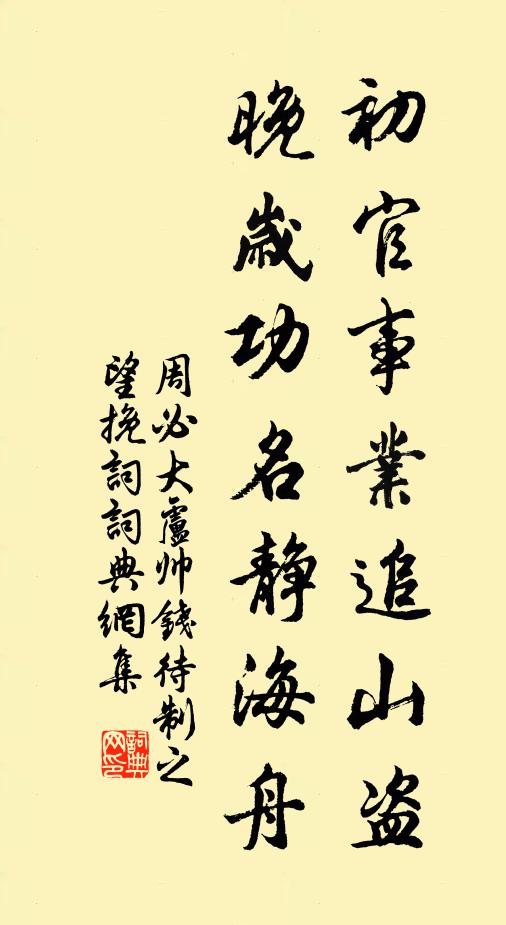 初官事業追山盗
晚歲功名静海舟
周必大盧帅錢待制之
望挽詞詞典網集
詞典网印